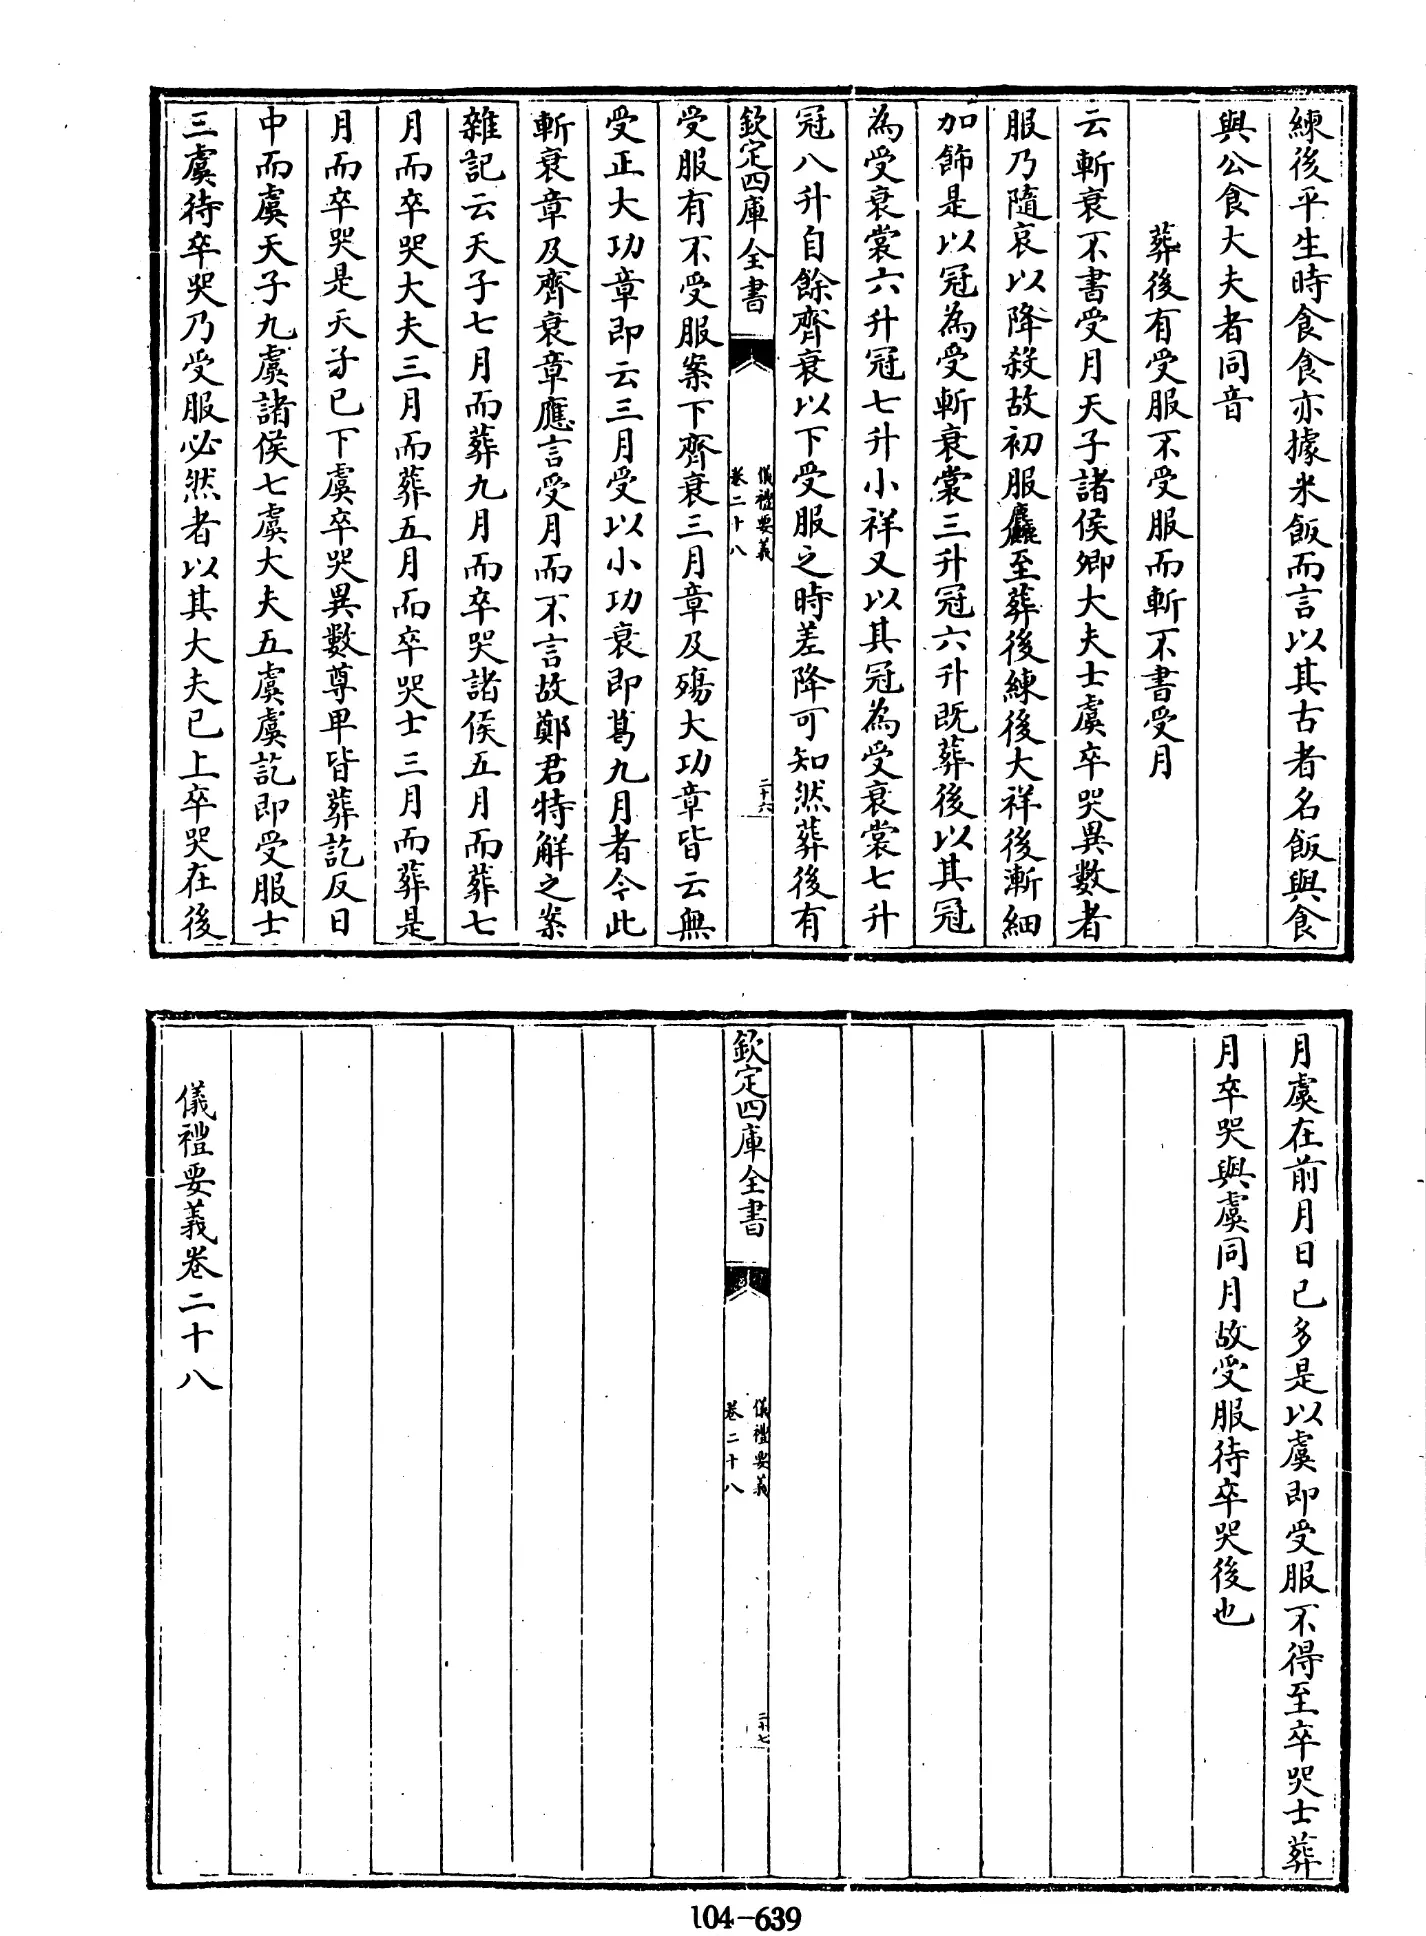 練後平生時食食亦據米飯而言以其古者名飯與食
與公食大夫者同音
葬後有受服不受服而斬不書受月
云斬衰不書受月天子諸侯卿大夫士虞卒哭異數者
服乃隨哀以降殺故初服麤至葬後練後大祥後漸細
加飾是以冠為受斬衰裳三升冠六升既葬後以其冠
為受衰裳六升冠七升小祥又以其冠為受衰裳七升
冠八升自餘齊衰以下受服之時差降可知然葬後有
欽定四庫全書
儀禮要義
卷二十八
二十六
受服有不受服案下齊衰三月章及殤大功章皆云無
受正大功章即云三月受以小功衰即葛九月者今此
斬衰章及齊衰章應言受月而不言故鄭君特解之案
雜記云天子七月而葬九月而卒哭諸侯五月而葬七
月而卒哭大夫三月而葬五月而卒哭士三月而葬是
月而卒哭是天子已下虞卒哭異數尊卑皆葬訖反日
中而虞天子九虞諸侯七虞大夫五虞虞訖即受服士
三虞待卒哭乃受服必然者以其大夫已上卒哭在後
月虞在前月日已多是以虞即受服不得至卒哭士葬
月卒哭與虞同月故受服待卒哭後也
欽定四庫全書
儀禮要義
卷二十八
二十七
儀禮要義卷二十八
104-639